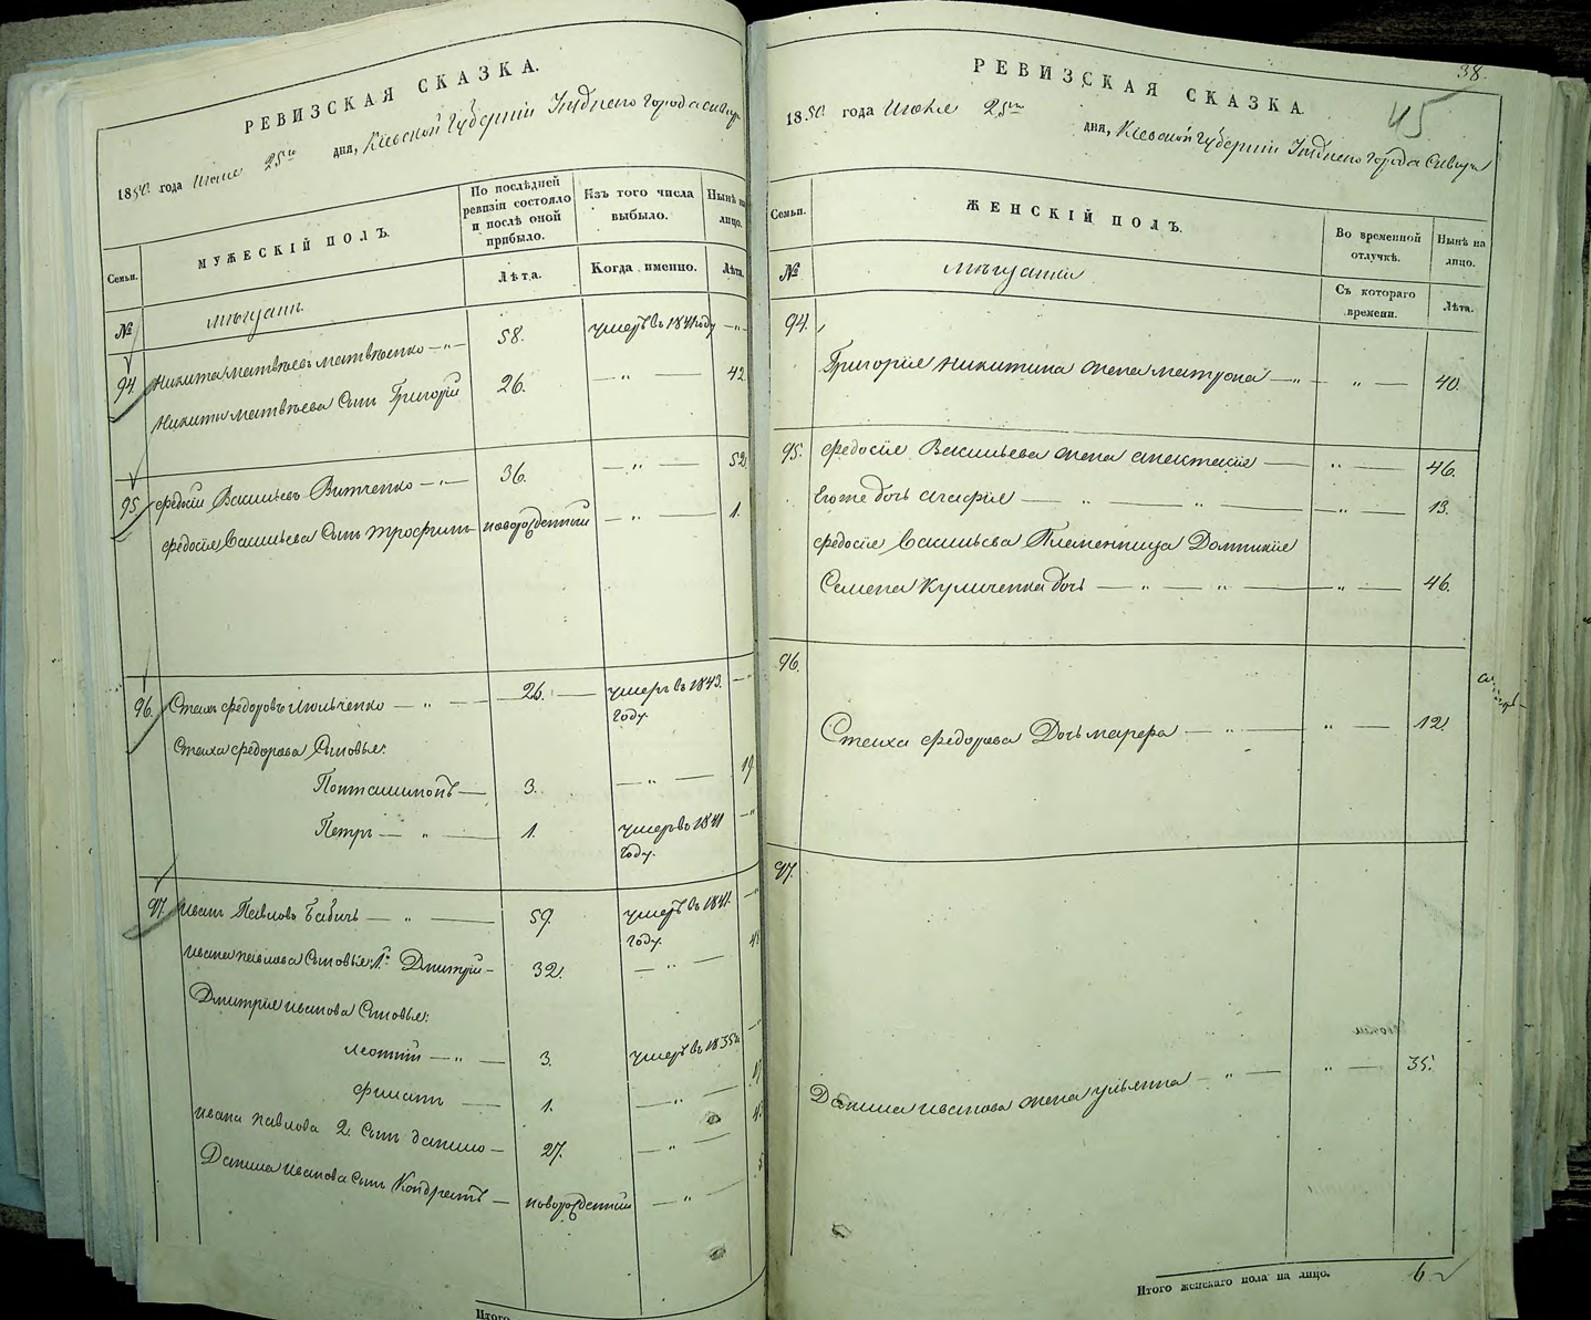 РЕВИЗСКАЯ СКАЗКА.
1850 года Июля 25го дня, Кіевской Губерніи города Сквиры
Семьи.
МУЖЕСКІЙ ПОЛЪ.
По послѣдней ревизіи состояло и послѣ оной прибыло.
Изъ того числа выбыло.
Нынѣ на лицо.
№
мещане
Лѣта.
Когда именно.
Лѣта.
94. Никита Матвѣевъ Матвѣенко — 58. умеръ въ 1841 году —
Никиты Матвѣева Сынъ Григорій 26. — 42
95. Федосій Васильевъ Витченко — 36. — 52.
Федосія Васильева Сынъ Трофимъ новорожденный — 1.
96. Стахъ Федоровъ Ильченко — 26. — умеръ въ 1843. —
году.
Стаха Федорова Сыновья:
Понталимонъ — 3. — 19
Петръ — 1. умеръ въ 1841 —
году.
97. Иванъ Павловъ Бабичъ — 59. умеръ въ 1841. —
году.
Ивана Павлова Сыновья: 1й Дмитрій — 32. —
Дмитрія Иванова Сыновья:
Леонтій — 3. умеръ въ 1835
Филипъ — 1. —
Ивана Павлова 2. Сынъ Данило — 27. —
Данила Иванова Сынъ Кондратъ — новорожденный —
Итого
38.
45
РЕВИЗСКАЯ СКАЗКА.
1850 года Июля 25го дня, Кіевской Губерніи города Сквиры
Семьи.
ЖЕНСКІЙ ПОЛЪ.
Во временной отлучкѣ.
Нынѣ на лицо.
№
мещанки
Съ котораго времени.
Лѣта.
94.
Григорія Никитина жена Матрона — 40.
95. Федосія Васильева жена Анастасія — 46.
Его же дочь Агафія — 13.
Федосія Васильева Племенница Домникія
Семена Куличенка дочь — 46.
96.
Стаха Федорова Дочь Марфа — 12.
97.
Данила Иванова жена Ульянна — 35.
Итого женскаго пола на лицо. 6.